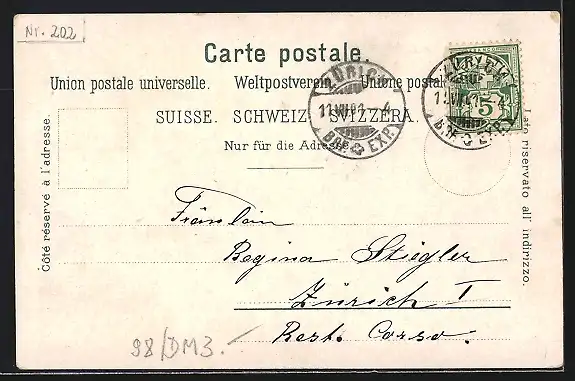 Nr. 202
Carte postale.
Union postale universelle. Weltpostverein. Unione postale
SUISSE. SCHWEIZ. SVIZZERA.
Nur für die Adresse.
Côté réservé à l'adresse.
Lato riservato all' indirizzo.
ZÜRICH
11.VII.01.-4
BRF. EXP.
11.VII.01.-4
BRF. EXP.
5
Fräulein
Regina Stiegler
Zürich I
Rest. Corso.
98/DM3.